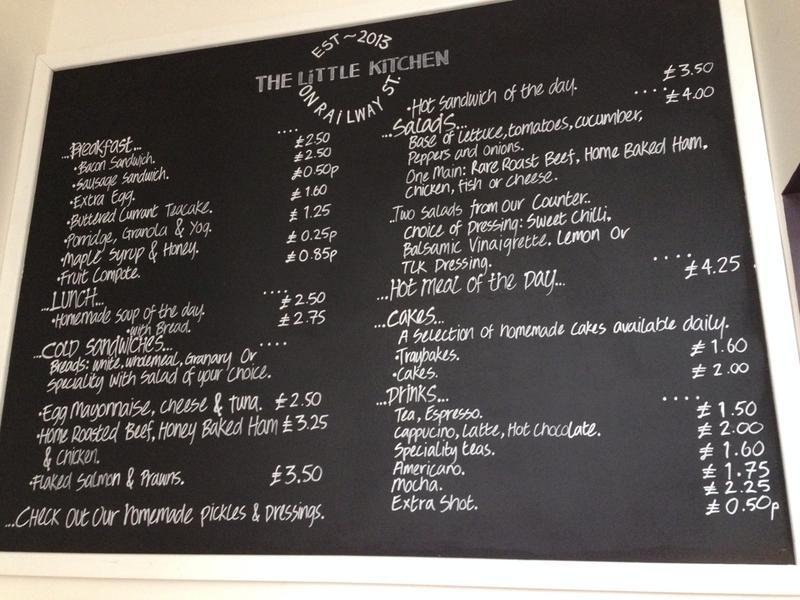 EST ~ 2013
THE LiTTLE KiTCHEN
ON RAILWAY ST.
...Breakfast... ....
•Bacon Sandwich. £2.50
•Sausage Sandwich. £2.50
•Extra Egg. £0.50p
•Buttered Currant Teacake. £1.60
•Porridge, Granola & Yog. £1.25
•Maple Syrup & Honey. £0.25p
•Fruit Compote. £0.85p
...LUNCH... ....
•Homemade soup of the day. £2.50
•with Bread. £2.75
...COLD SANDWICHES... ....
Breads: white, wholemeal, Granary Or
Speciality with salad of your choice.
•Egg Mayonnaise, cheese & tuna. £2.50
•Home Roasted Beef, Honey Baked Ham £3.25
& chicken.
•Flaked Salmon & Prawns. £3.50
...CHECK OUT OUR homemade pickles & Dressings.
•Hot Sandwich of the day. £3.50
...SALADS... .... £4.00
Base of Lettuce, tomatoes, cucumber,
Peppers and onions.
One Main: Rare Roast Beef, Home Baked Ham,
Chicken, fish or cheese.
..Two salads from our Counter..
Choice of Dressing: Sweet Chilli,
Balsamic Vinaigrette, Lemon Or
TLK Dressing.
...HOT MEAL OF THE DAY... .... £4.25
...CAKES...
A Selection of homemade cakes available daily.
•Traybakes. £1.60
•Cakes. £2.00
...DRINKS... ....
Tea, Espresso. £1.50
Cappucino, Latte, Hot Chocolate. £2.00
Speciality teas. £1.60
Americano. £1.75
Mocha. £2.25
Extra Shot. £0.50p